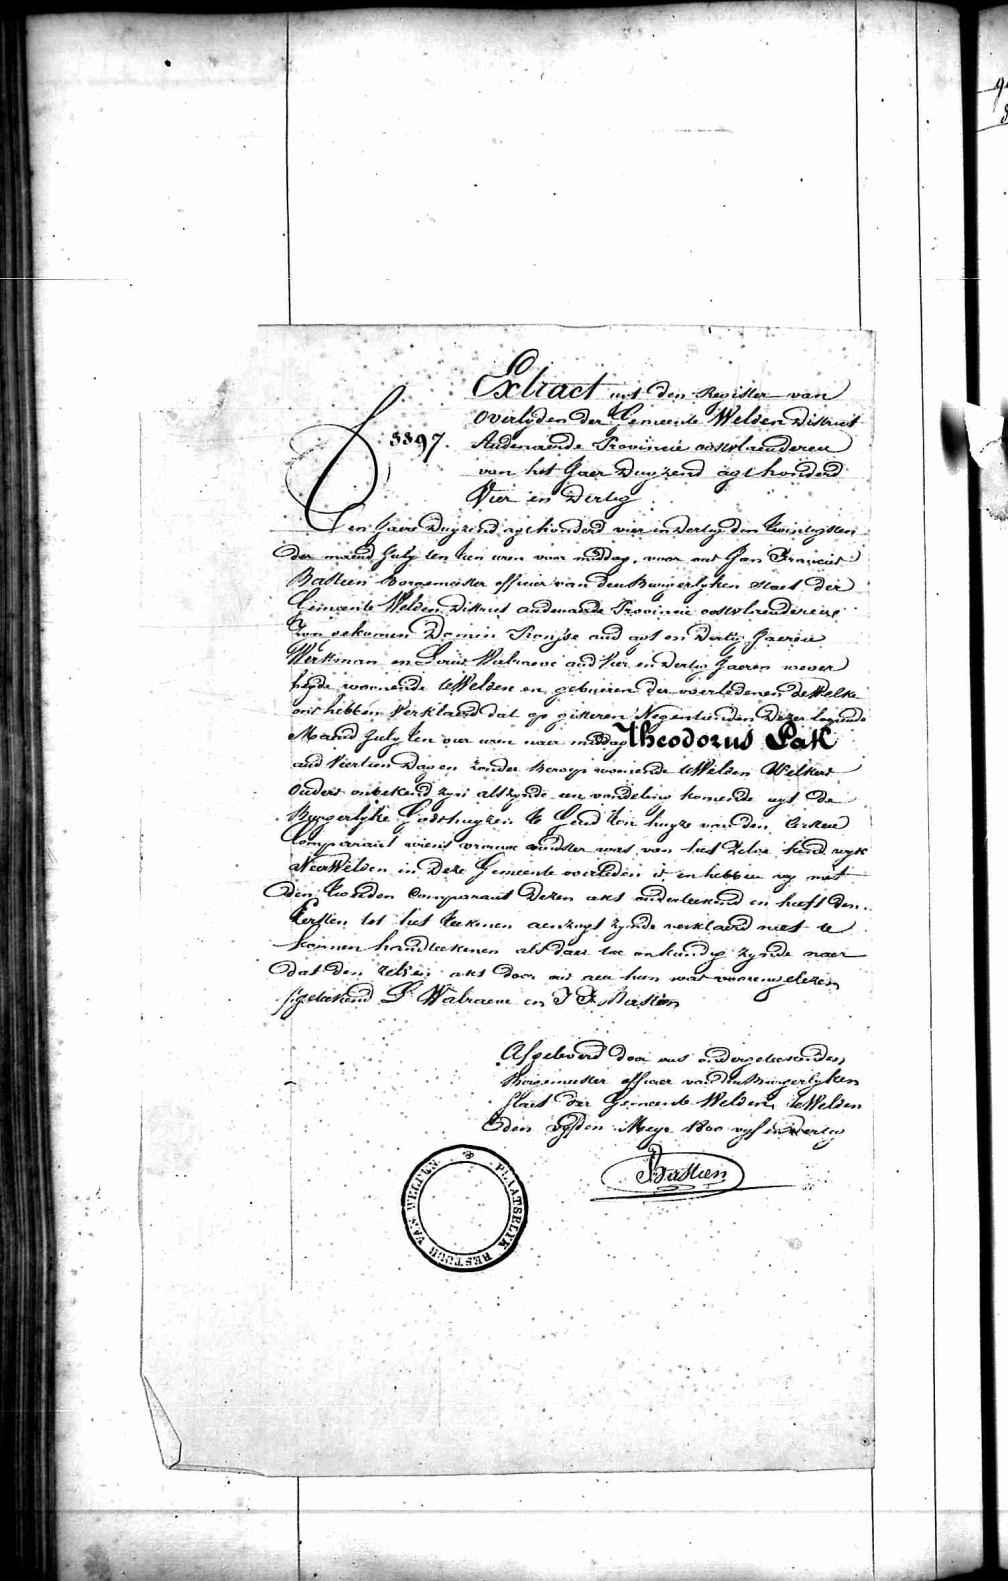 Extract uut den Register van
Overlyden der Gemeente Welden District
3397.
Audenaerde Provincie oostvlaenderen
van het Jaer Duyzend agt honderd
Vier en Dertig
Ten Jaere Duyzend agt honderd vier in dertig den twintigsten
der maend July ten tien uren voor middag, voor ons Jan Francies
Bastien Borgemeester officier van den Burgerlyken staet der
Gemeente Welden District audenaerde Provincie oostvlaenderen
Zyn gekomen Domin oud agt en Dertig Jaeren
Werkman en Louis Walraeve oud Vier en dertig Jaeren wever
beyde woonende te Welden en gebueren der overledenen dewelke
ons hebben Verklaerd dat op gisteren Negentienden Dezer loopende
Maend July ten vier uren naer middag Theodorus Pak
oud Viertien Dagen zonder Beroep woonende te Welden Welkers
Ouders onbekend zyn alszynde een vondeling komende uyt de
Burgerlyke Godshuyzen te Gend ten huyze van den Eersten
Comparant wiens vrouwe minster was van het zelve kind wyk
NeerWelden in Deze Gemeente overleden is en hebben wy met
den tweeden Comparant Dezen akt onderteekend en heeft den
Eersten tot het teekenen aenzogt zynde verklaerd niet te
konnen handteekenen als daer toe onkundig zynde naer
dat den zelven akt door ons aen hun was voorengelezen
(geteekend L. Walraeve en J F. Bastien
Afgeleverd door ons ondergeteekenden
Borgemeester officier van den Burgerlyken
staet der Gemeente Welden, te Welden
den vyfden Mey 1800 vyf en dertig
Bastien
PLAATSELYK BESTUUR VAN WELDEN